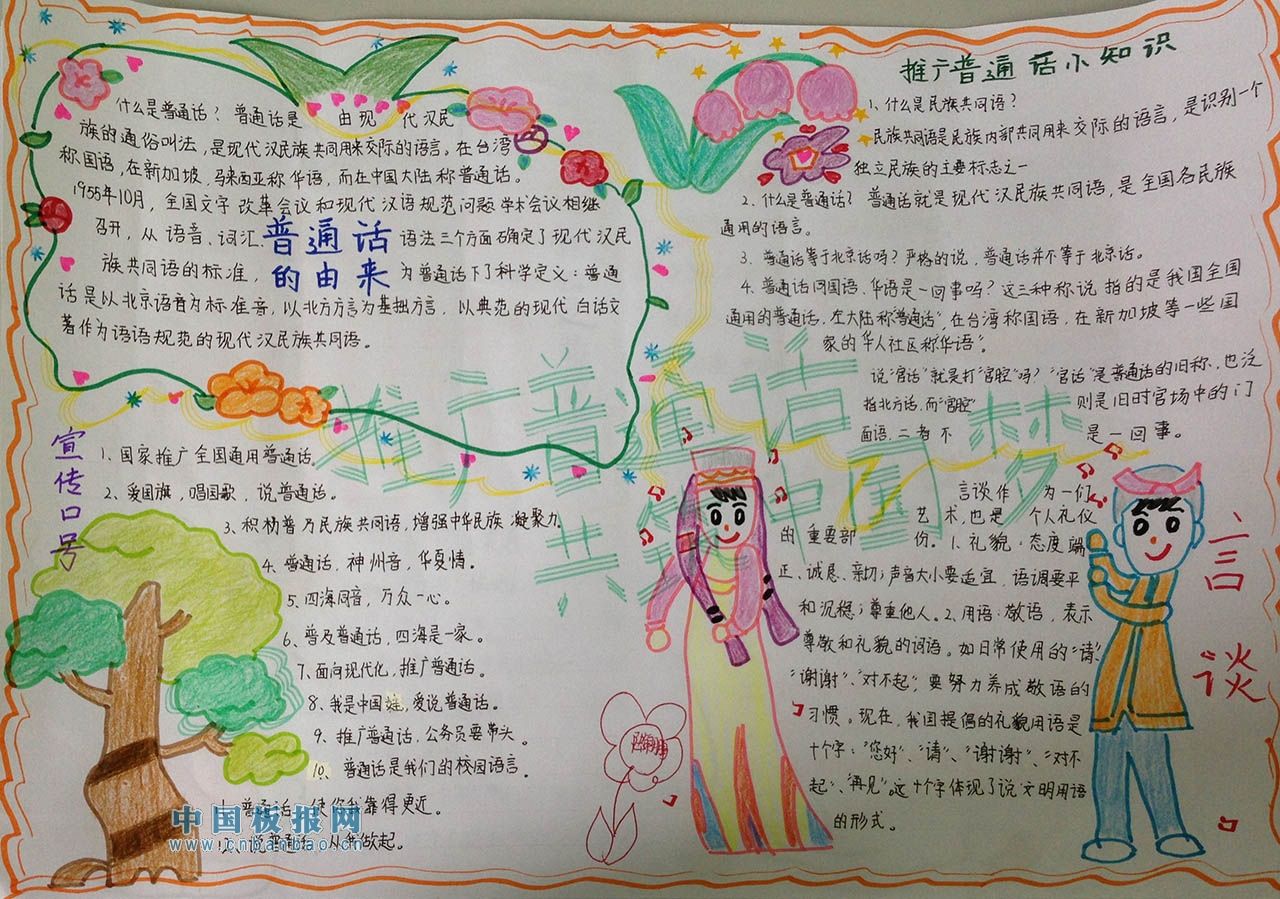 什么是普通话？普通话是由现代汉民
族的通俗叫法，是现代汉民族共同用来交际的语言。在台湾
称国语，在新加坡，马来西亚称华语，而在中国大陆称普通话。
1955年10月，全国文字改革会议和现代汉语规范问题学术会议相继
召开，从语音、词汇、语法三个方面确定了现代汉民
族共同语的标准，为普通话下了科学定义：普通
话是以北京语音为标准音，以北方方言为基础方言，以典范的现代白话文
著作为语语规范的现代汉民族共同语。
普通话
的由来
推广普通话小知识
1、什么是民族共同语？
民族共同语是民族内部共同用来交际的语言，是识别一个
独立民族的主要标志之一
2、什么是普通话？普通话就是现代汉民族共同语，是全国各民族
通用的语言。
3、普通话等于北京话吗？严格的说，普通话并不等于北京话。
4、普通话同国语、华语是一回事吗？这三种称说指的是我国全国
通用的普通话，在大陆称“普通话”，在台湾称国语，在新加坡等一些国
家的华人社区称华语”。
说“官话”就是打“官腔”吗？“官话”是普通话的旧称，也泛
指北方话，而“官腔”则是旧时官场中的门
面语，二者不是一回事。
推广普通话
共 中国梦
宣传口号
1、国家推广全国通用普通话。
2、爱国旗，唱国歌，说普通话。
3、积极普及民族共同语，增强中华民族凝聚力
4、普通话，神州音，华夏情。
5、四海同音，万众一心。
6、普及普通话，四海是一家。
7、面向现代化，推广普通话。
8、我是中国娃，爱说普通话。
9、推广普通话，公务员要带头。
10、普通话是我们的校园语言。
普通话，使你我靠得更近。
说普通话，从我做起。
言谈
言谈作为一们
艺术，也是个人礼仪
的重要部份。1、礼貌：态度端
正、诚恳、亲切；声音大小要适宜，语调要平
和沉稳；尊重他人。2、用语：敬语，表示
尊敬和礼貌的词语。如日常使用的“请”、
“谢谢”、“对不起”，要努力养成敬语的
习惯。现在，我国提倡的礼貌用语是
十个字：“您好”、“请”、“谢谢”、“对不
起”、“再见”。这十个字体现了说文明用语
的形式。
中国板报网
www.cnbanbao.cn